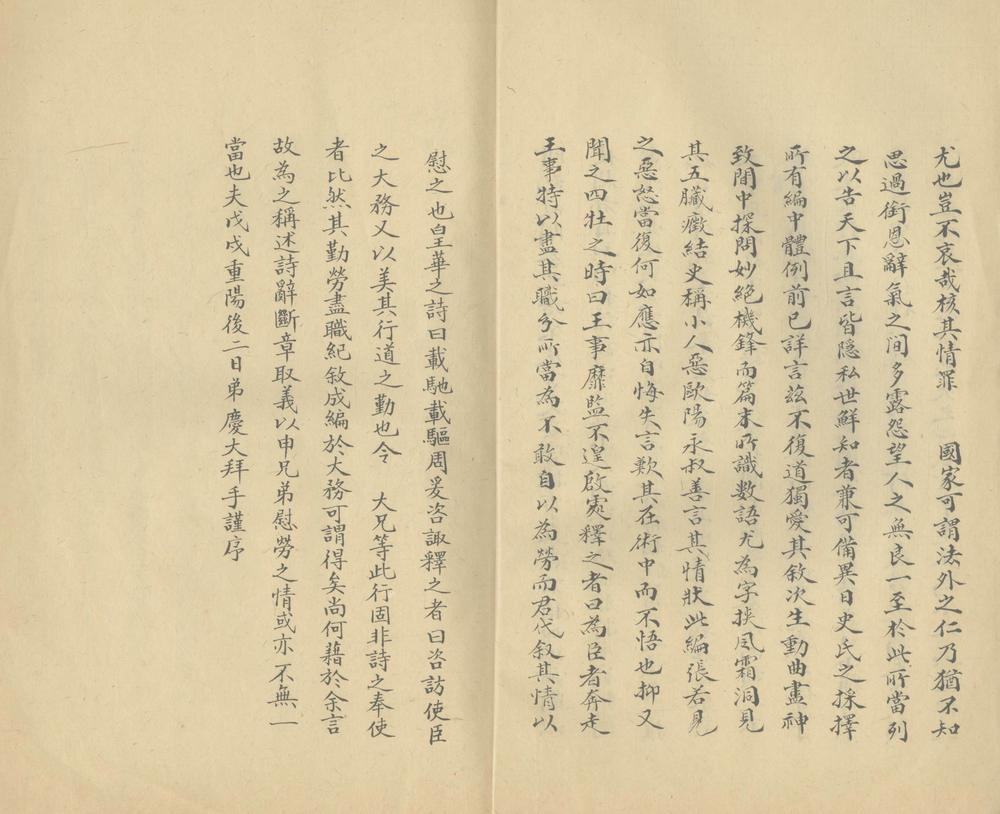 尤也豈不哀哉核其情罪　國家可謂法外之仁乃猶不知
思過銜恩辭氣之间多露怨望人之無良一至於此所當列
之以告天下且言皆隱私世鮮知者兼可備異日史氏之採擇
所有編中體例前已詳言茲不復道獨愛其敘次生動曲盡神
致間中探問妙絕機鋒而篇末所識数語尤為字挾風霜洞見
其五臟癥結史稱小人惡歐陽永叔善言其情狀此編張若見
之惡怒當復何如應亦自悔失言歎其在術中而不悟也抑又
聞之四牡之時曰王事靡監不遑啟處釋之者曰為臣者奔走
王事特以盡其職分所當為不敢自以為勞而君代叙其情以
慰之也皇華之詩曰載馳載驅周爰咨諏釋之者曰咨訪使臣
之大務又以美其行道之勤也今　大兄等此行固非詩之奉使
者比然其勤勞盡職紀敘成編於大務可謂得矣尚何藉於余言
故為之稱述詩辭斷章取義以申兄弟慰勞之情或亦不無一
當也夫戊戌重陽後二日弟慶大拜手謹序